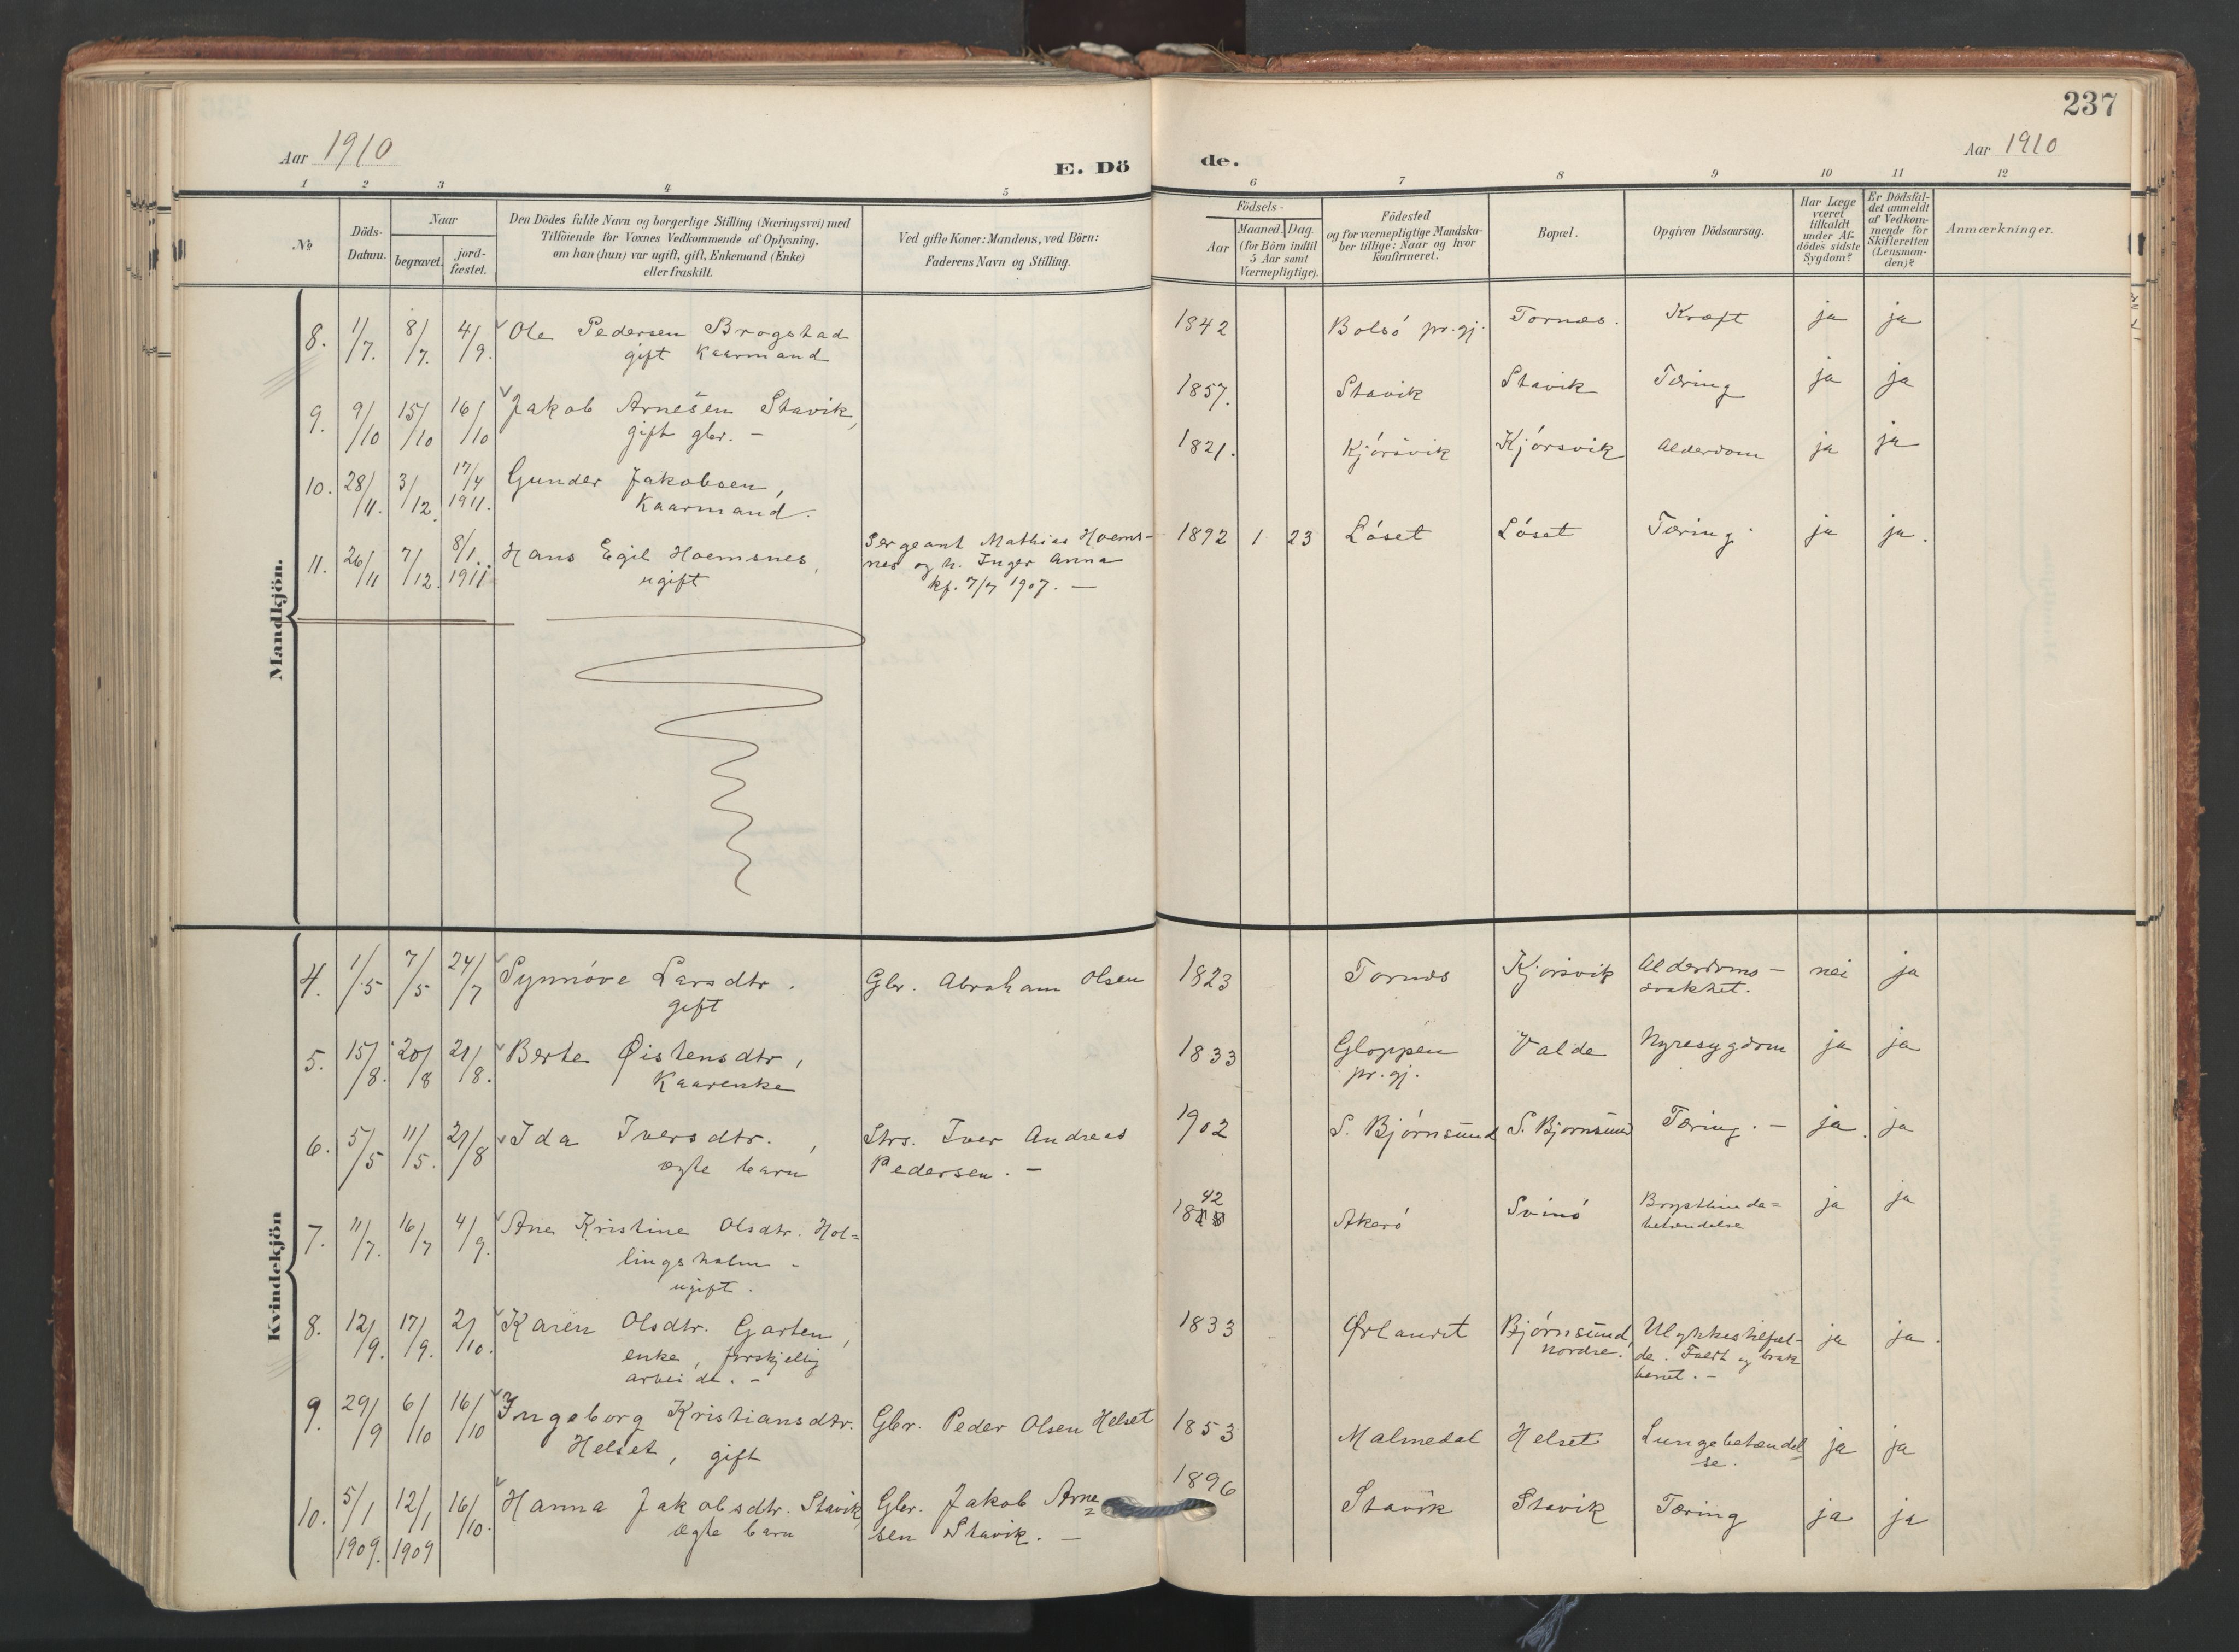 237
Aar 1910
E. Dö
de.
Aar 1910
1 2 3 4 5 6 7 8 9 10 11 12
No
Döds-
Datum.
Naar
begravet.
jord-
fæstet.
Den Dödes fulde Navn og borgerlige Stilling (Næringsvei) med
Tilföiende for Voxnes Vedkommende af Oplysning,
om han (hun) var ugift, gift, Enkemand (Enke)
eller fraskilt.
Ved gifte Koner: Mandens, ved Börn:
Faderens Navn og Stilling.
Födsels-
Aar
Maaned. Dag.
(for Börn indtil
5 Aar samt
Værnepligtige).
Födested
og for værnepligtige Mandska-
ber tillige: Naar og hvor
konfirmeret.
Bopæl.
Opgiven Dödsaarsag.
Har Læge
været
tilkaldt
under Af-
dödes sidste
Sygdom?
Er Dödsfal-
det anmeldt
af Vedkom-
mende for
Skifteretten
(Lensman-
den)?
Anmærkninger.
Mandkjön.
8. 1/7. 8/7. 4/9. Ole Pedersen Brogstad 1842 Bolsö pr.gj. Tornes. Kræft ja ja
gift kaarmand
9. 9/10 15/10 16/10 Jakob Arnesen Stavik, 1857. Stavik Stavik Tæring ja ja
gift gbr. -
10. 28/11. 3/12. 17/4 1911. Gunder Jakobsen, 1821. Kjörsvik Kjörsvik Alderdom ja ja
Kaarmand.
11. 26/11 7/12. 8/1. 1911. Hans Egil Hoemsnes, Sergeant Mathias Hoems- 1892 1 23 Löset Löset Tæring ja ja.
ugift nes og h. Inger Anna
kf. 7/7 1907. -
Kvindekjön
4. 1/5 7/5 24/7 Synnöve Larsdtr. Gbr. Abraham Olsen 1823 Tornes Kjörsvik Alderdoms- nei ja
gift svakhet.
5. 15/8. 20/8 21/8. Berte Øistensdtr, 1833 Gloppen Valde Nyresygdom ja ja
Kaarenke pr.gj.
6. 5/5 11/5. 21/8 Ida Iversdtr., Strs. Iver Andreas 1902 S. Björnsund S. Björnsund Tæring. - ja. ja
ægte barn Pedersen. -
7. 11/7. 16/7 4/9. Ane Kristine Olsdtr. Hol= 1842 Akerö Svinö Brysthinde= ja ja
lingsholm - betændelse
ugift.
8. 12/9. 17/9. 2/10. Karen Olsdtr. Garten, 1833 Ørlandet Björnsund Ulykkestilfæl- ja ja.
enke, forskjellig nordre. de. Faldt og brak
arbeide. - benet. -
9. 29/9 6/10 16/10 Ingeborg Kristiansdtr. Gbr. Peder Olsen Helset 1853 Malmedal Helset Lungebetændel ja ja
Helset, gift se.
10. 5/1 1909. 12/1 1909 16/10. Hanna Jakobsdtr. Stavik Gbr. Jakob Arne= 1896 Stavik Stavik Tæring ja ja
ægte barn sen Stavik. -